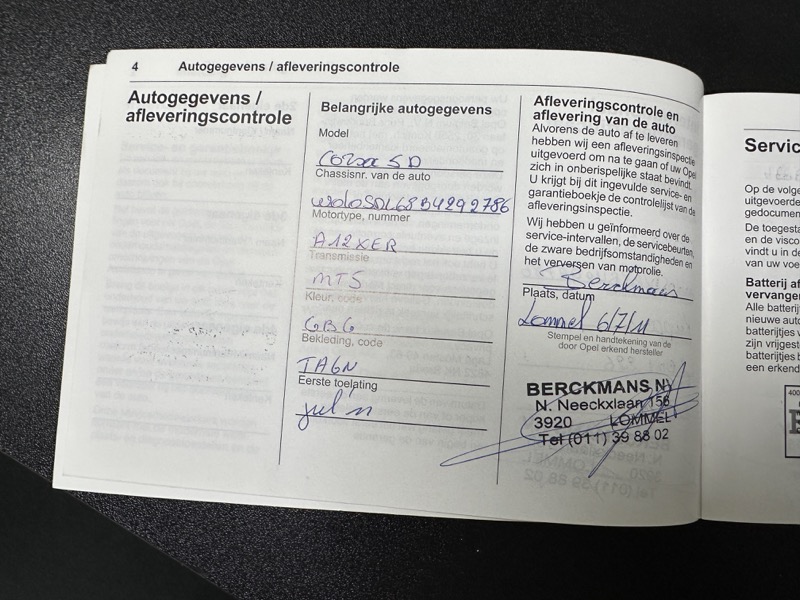 4 Autogegevens / afleveringscontrole
Autogegevens /
afleveringscontrole
Belangrijke autogegevens
Model
Corsa 5D
Chassisnr. van de auto
W0L0SDL68B4292786
Motortype, nummer
A12XER
Transmissie
MT5
Kleur, code
GBG
Bekleding, code
TA6N
Eerste toelating
jul '11
Afleveringscontrole en
aflevering van de auto
Alvorens de auto af te leveren
hebben wij een afleveringsinspectie
uitgevoerd om na te gaan of uw Opel
zich in onberispelijke staat bevindt.
U krijgt bij dit ingevulde service- en
garantieboekje de controlelijst van de
afleveringsinspectie.
Wij hebben u geïnformeerd over de
service-intervallen, de servicebeurten,
de zware bedrijfsomstandigheden en
het verversen van motorolie.
Berckmans
Plaats, datum
Lommel 6/7/11
Stempel en handtekening van de
door Opel erkend hersteller
BERCKMANS NV
N. Neeckxlaan 156
3920 LOMMEL
Tel (011) 39 88 02
Servic
Op de volge
uitgevoerde
gedocumen
De toegesta
en de visco
vindt u in de
van uw voe
Batterij af
vervangen
Alle batterij
nieuwe auto
batterijtjes v
zijn vrijgest
batterijtjes b
een erkend
400